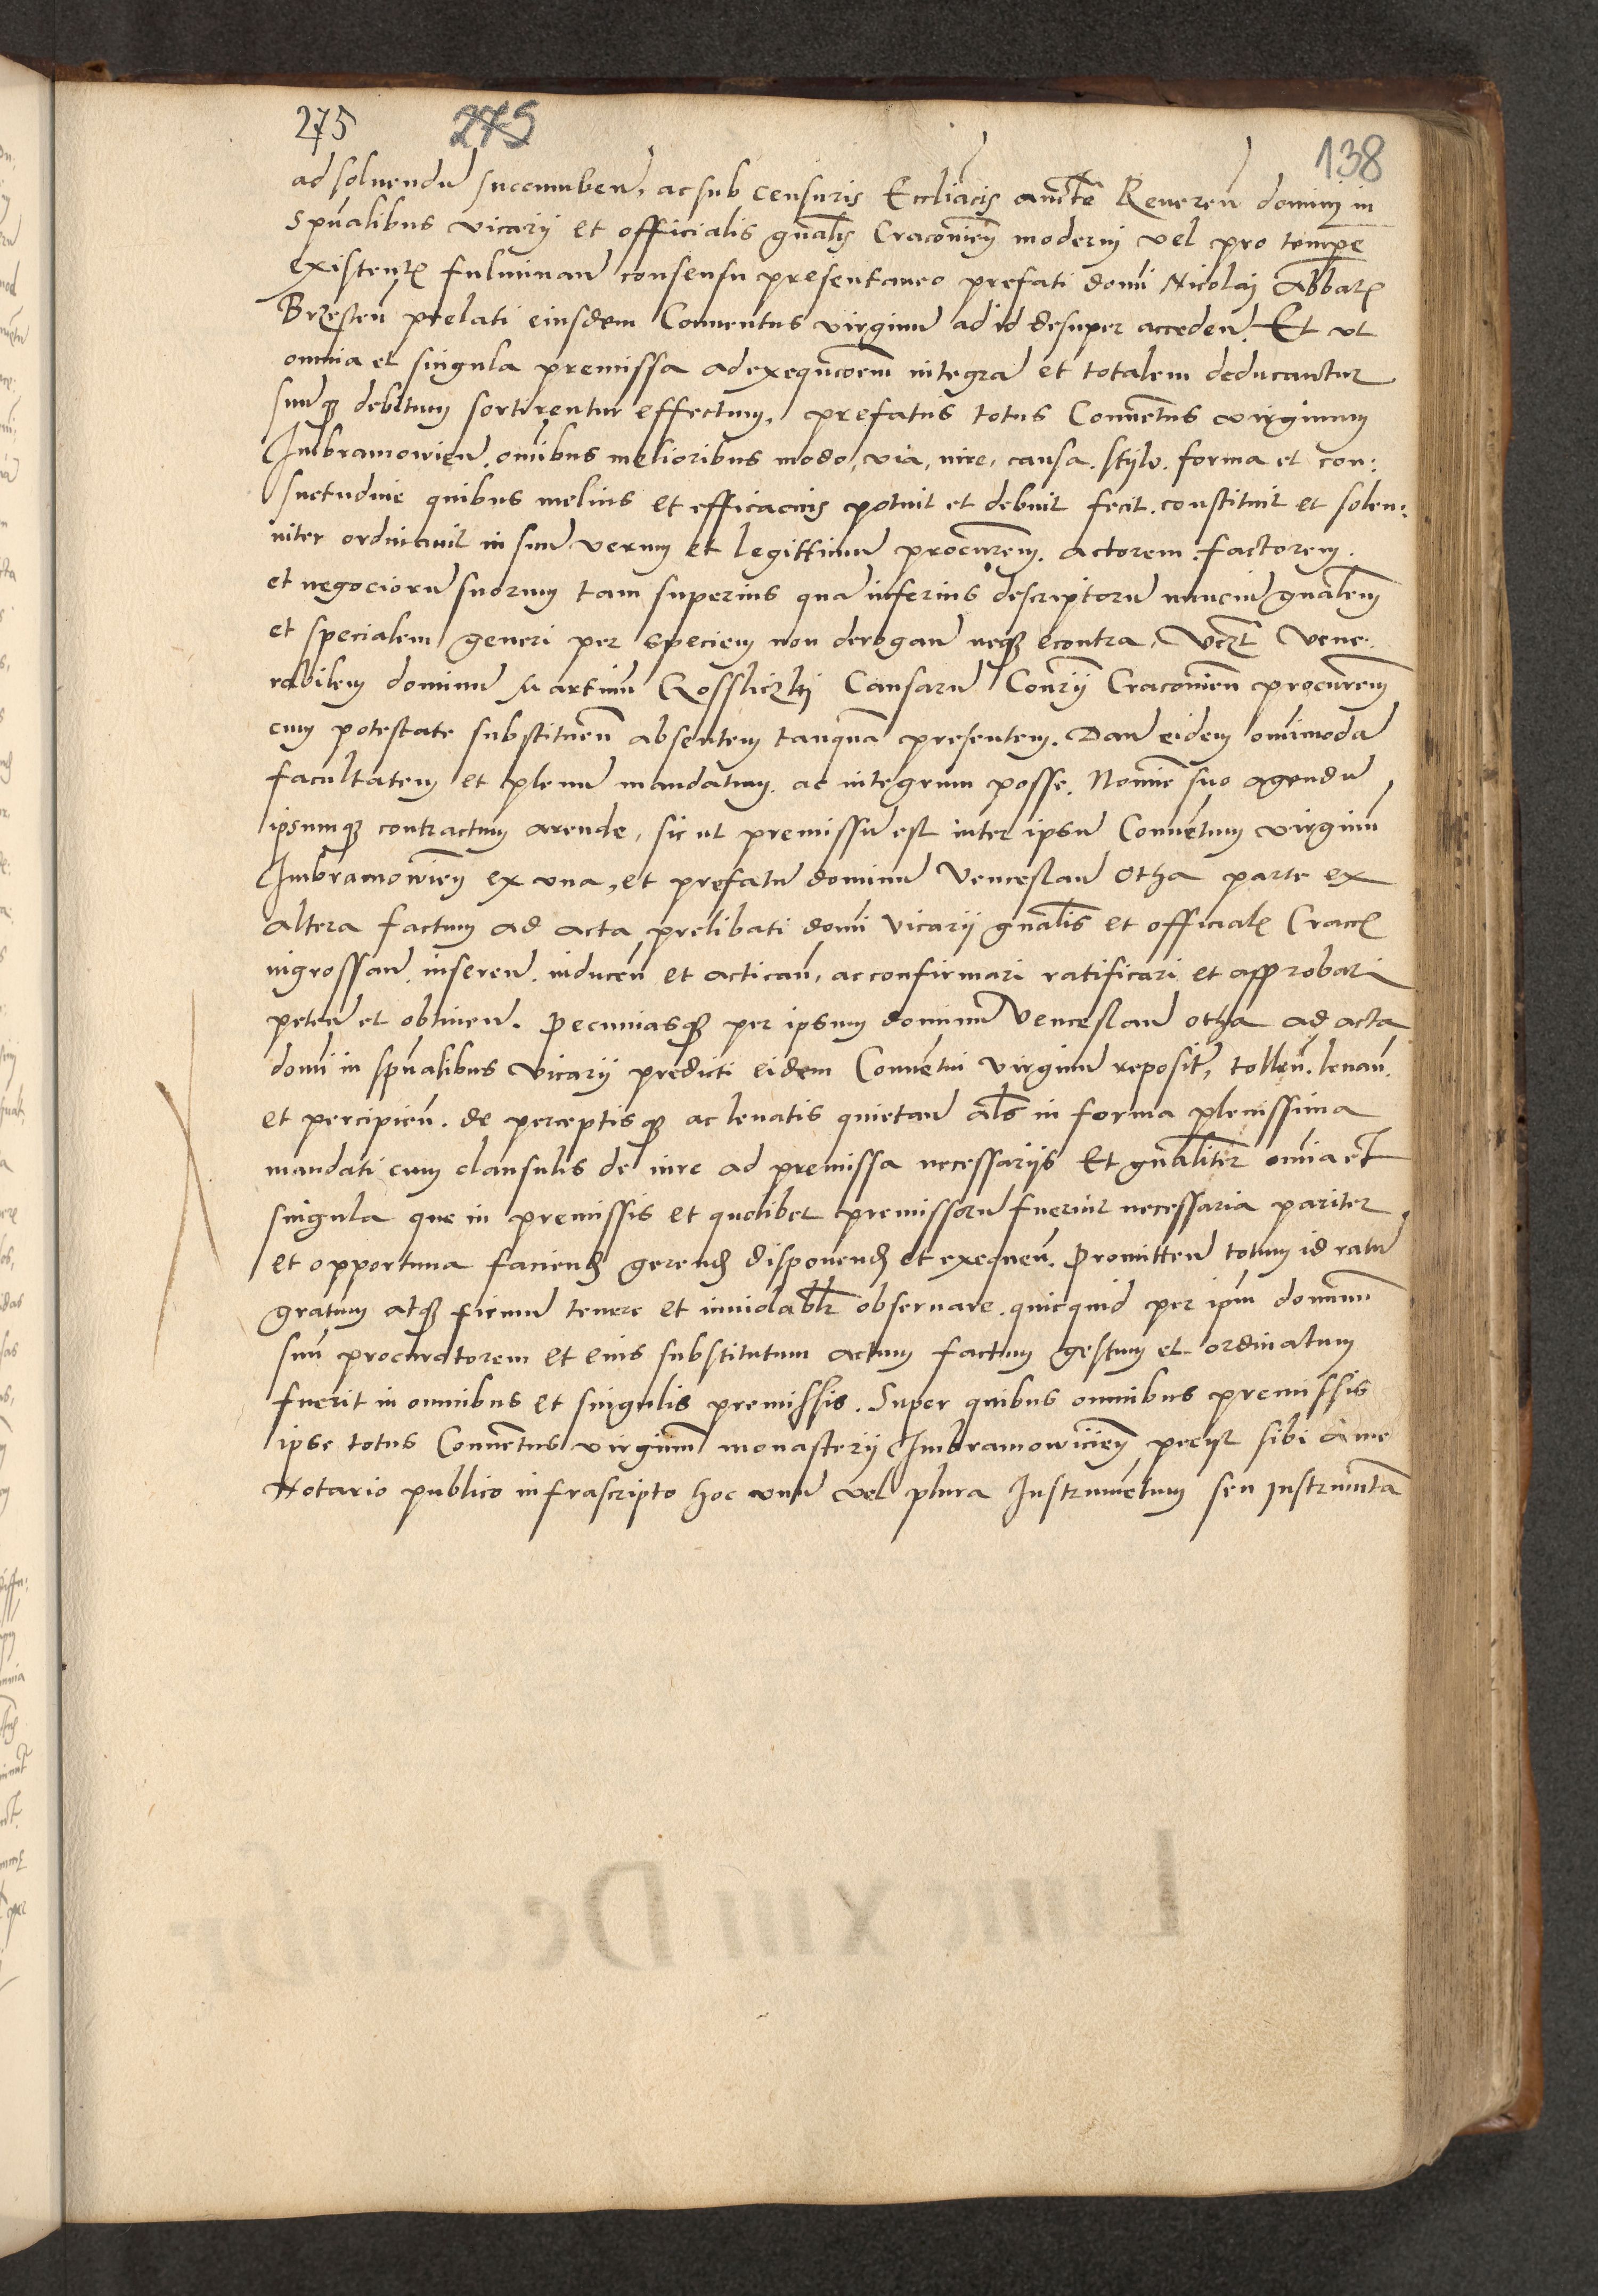 275 275 138
ad soluendū succumbeñ, ac sub censuris Eccliacis aucte Reuereñ domini in
spūalibus vicarij et officialis gnālis Cracouieñ moderni vel pro tempe
existeñ fulminañ consensu presentaneo prefati domi Nicolai Abbatis
Brzesceñ prelati eiusdem Conuentus virginū ad id desuper accedeñ. Et vt
omnia et singula premissa ad exequcoem integrā et totalem deducantur
suūq debitum sortirentur effectum, prefatus totus Conuētus virginum
Imbramowieñ. omibus melioribus modo, via, iure, causa. stylo. forma et con:
suetudine quibus melius et efficacius potuit et debuit fecit. constituit et solen:
niter ordinauit in suū verum et legittimū procurem. actorem. factorem.
et negociorū suorum tam superius quā inferius descriptorū nunciū gnalem
et specialem generi per speciem non derogañ neq econtra, Vczt Vene:
rabilem dominū Martinū Rossliczki Causarū Conrij Cracouieñ procurem
cum potestate substitueñ absentem tanquā presentem. Dañ eidem omimodā
facultatem et plenū mandatum. ac integrum posse. Nomie suo agendū
ipsumq contractum arende, sic ut premissū est inter ipsū Conuētum virginū
Imbramowieñ ex vna, et prefatū dominū Venceslaū Otha parte ex
altera factum ad acta prelibati domi Vicarij gnālis et officialis Cracc
ingrossañ. insereñ. induceñ et acticañ, ac confirmari ratificari et approbari
peteñ et obtineñ. Pecuniasq per ipsum dominū Venceslaū otha ad acta
domi in spūalibus Vicarij predicti eidem Conuētui virginū reposit, tolleñ. leuañ.
et percipieñ. de perceptisq ac leuatis quietañ als in forma plenissima
mandati cum clausulis de iure ad premissa necessarijs Et gnāliter omia et
singula que in premissis et quolibet premissorū fuerint necessaria pariter
et opportuna faciend gerend disponend et exequeñ. Promitteñ totum id ratū
gratum atq firmū tenere et inuiolablr obseruare. quicquid per ipm dominū
suū procuratorem et eius substitutum actum factum gestum et ordinatum
fuerit in omnibus et singulis premissis. Super quibus omnibus premissis
ipse totus Conuētus virginum monasterij Imbramowicieñ pecijt sibi a me
Notario publico infrascripto hoc vnū vel plura Instrumētum seu Instrumta